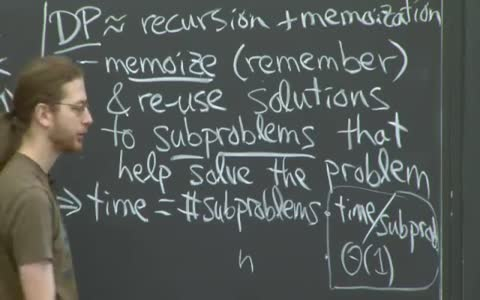 DP ≈ recursion + memoization
- memoize (remember)
& re-use solutions
to subproblems that
help solve the problem
⇒ time = #subproblems · time/subprob
n Θ(1)